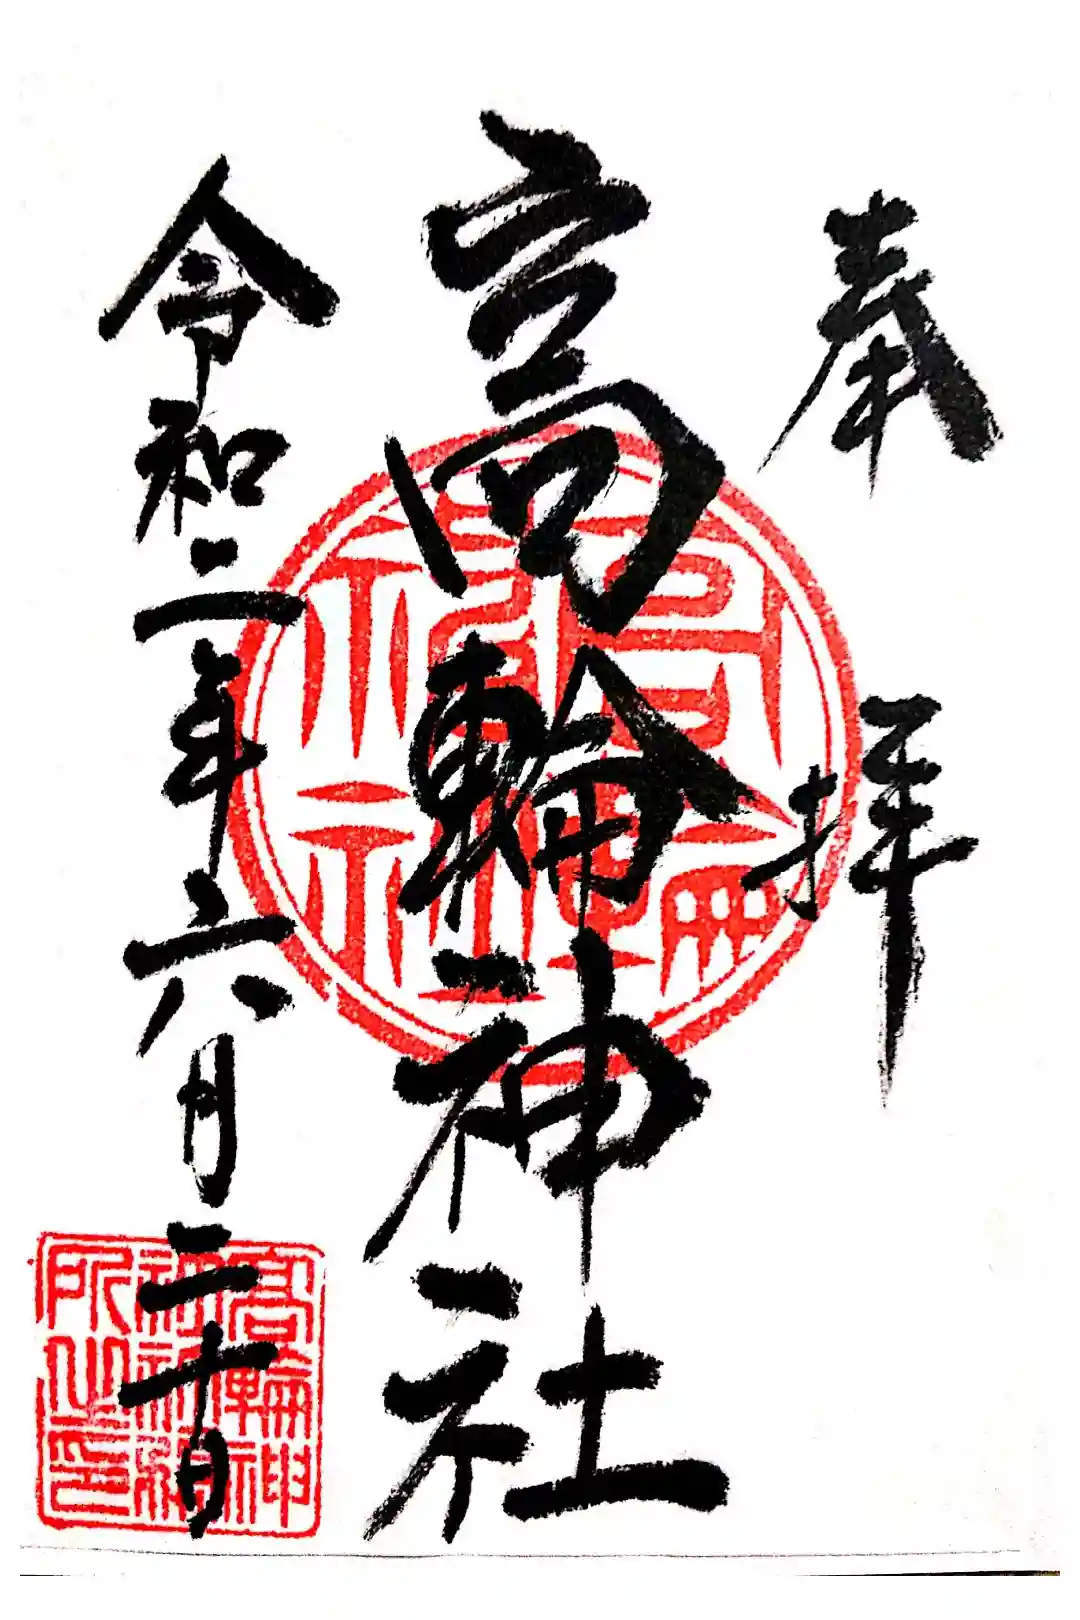 奉拝
高輪神社
令和二年六月二十日
高輪神社
高輪神
社務
所之印